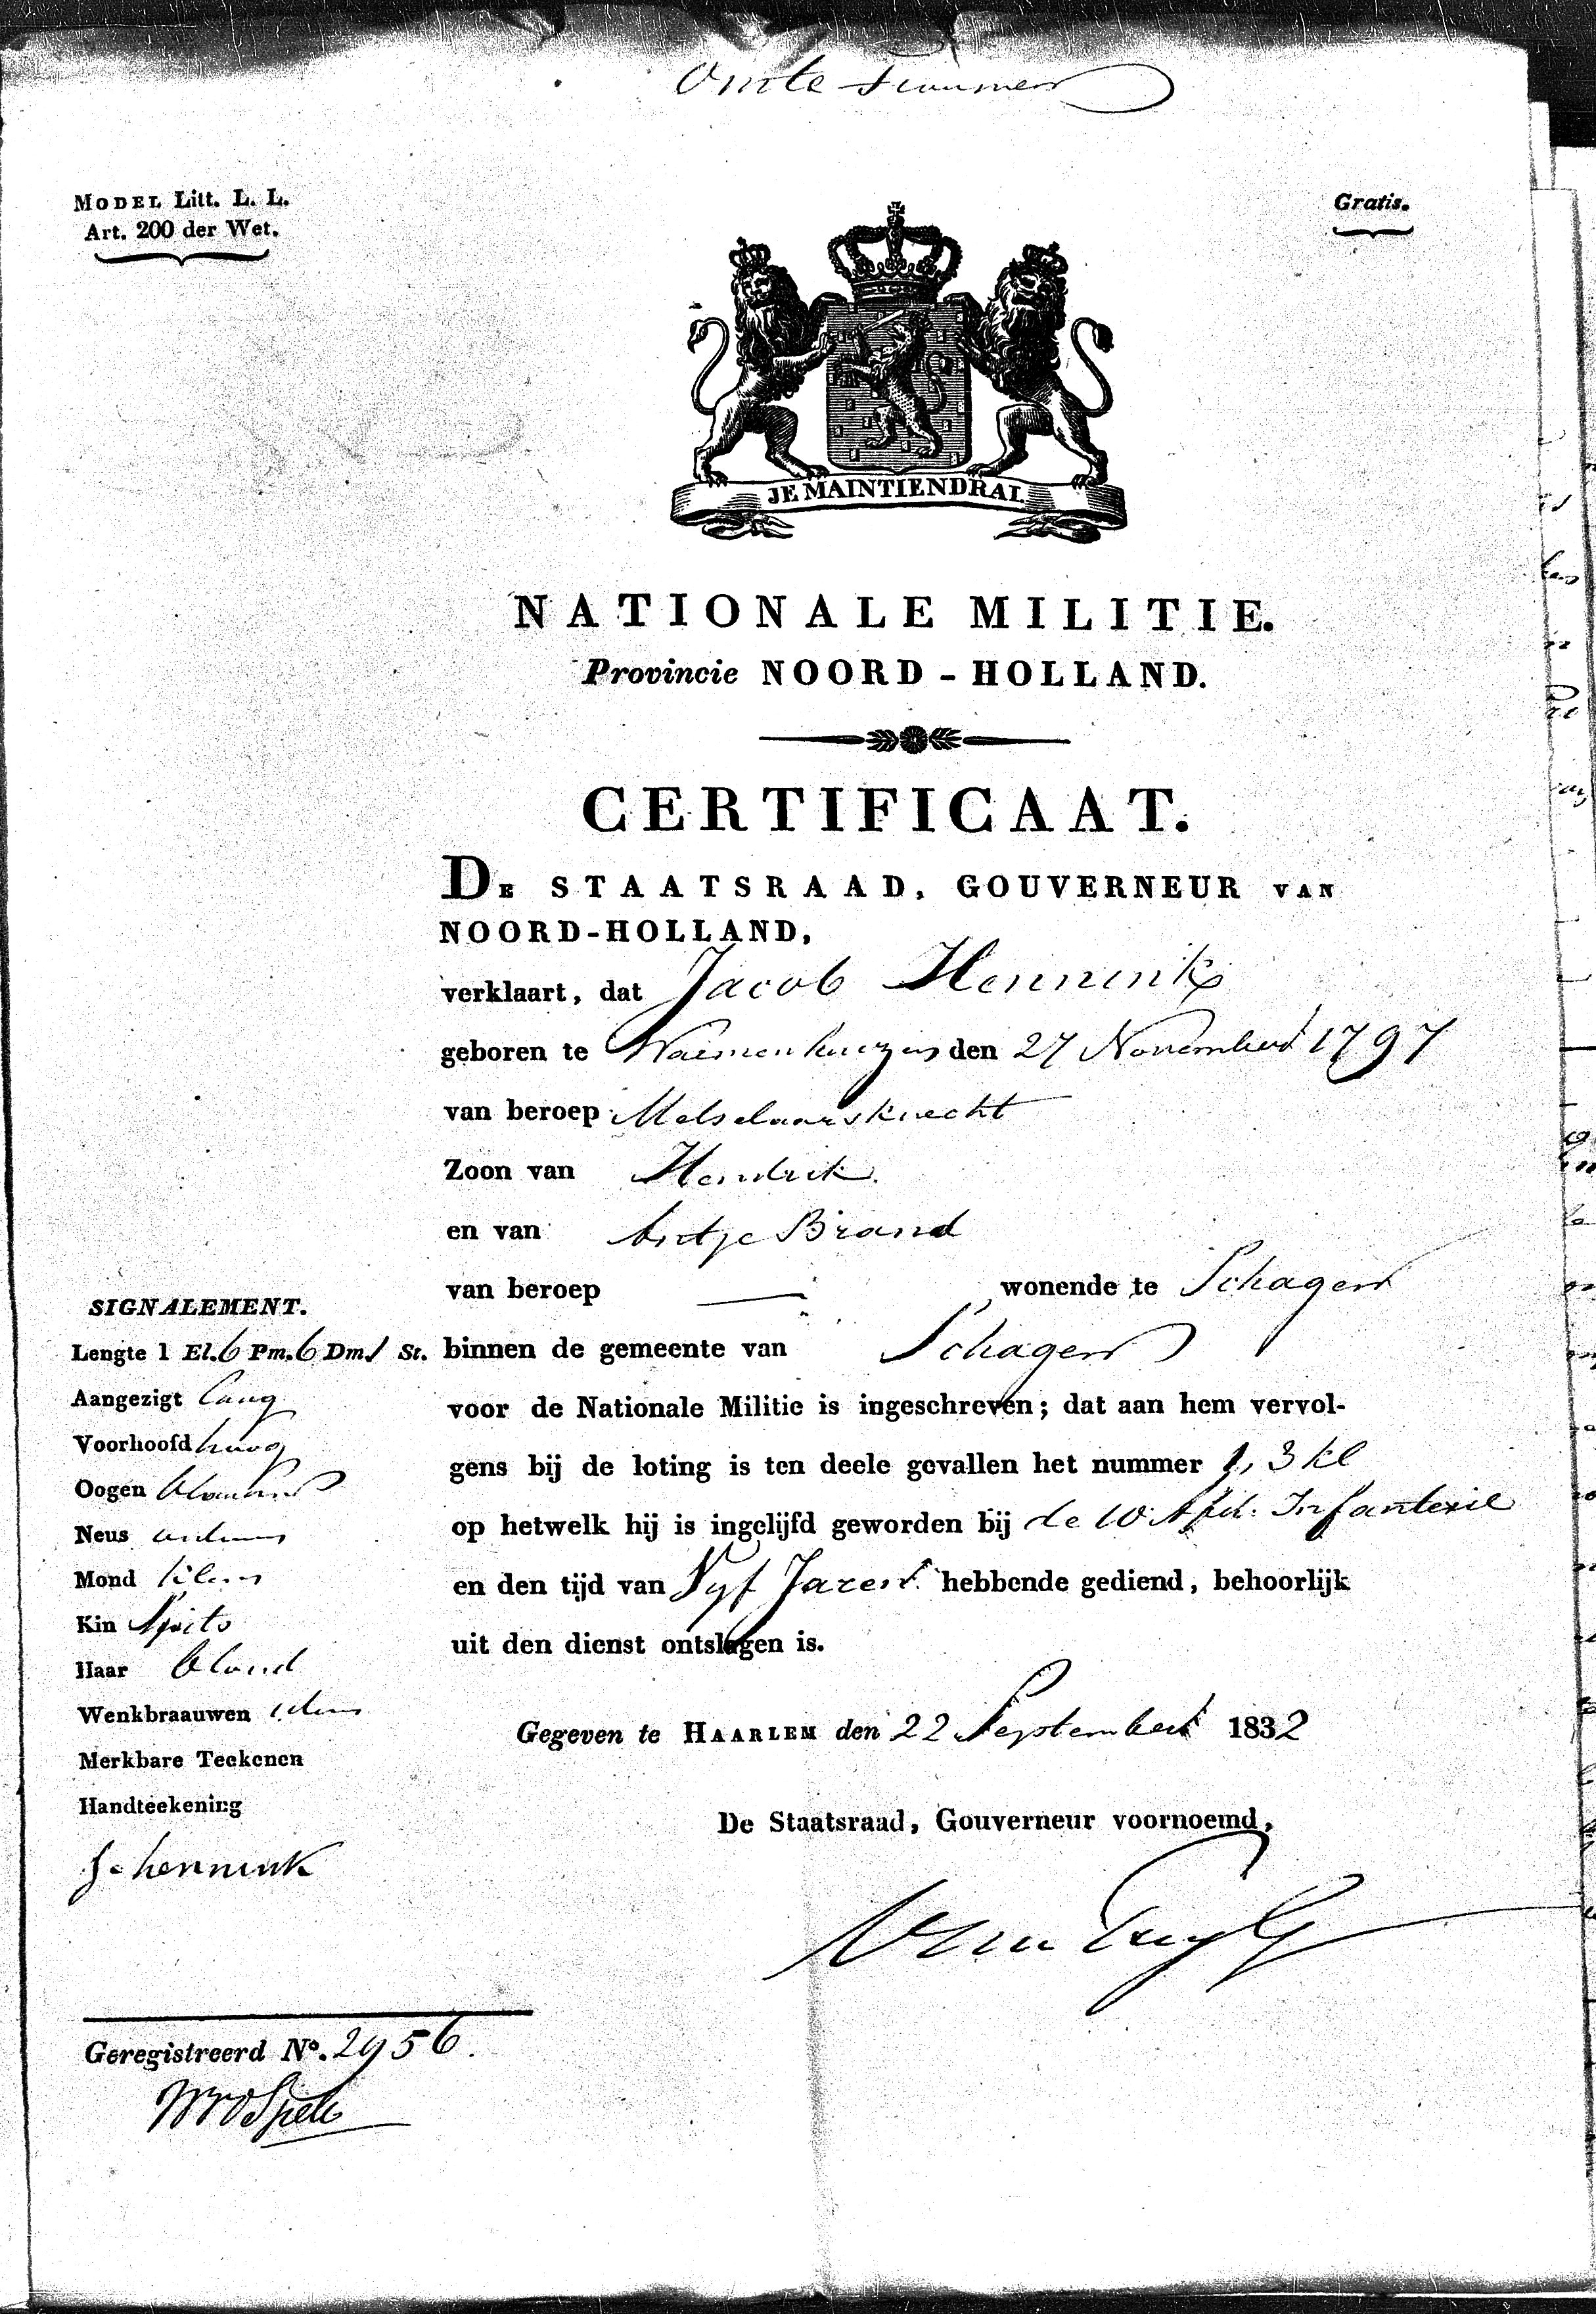 MODEL Litt. L. L.
Art. 200 der Wet.
Gratis.
JE MAINTIENDRAI
NATIONALE MILITIE.
Provincie NOORD-HOLLAND.
CERTIFICAAT.
DE STAATSRAAD, GOUVERNEUR VAN
NOORD-HOLLAND,
verklaart, dat Jacob Hennink
geboren te den 27 November 1797
van beroep Metselaarsknecht
Zoon van Hendrik
en van Antje Brand
van beroep — wonende te Schagen
binnen de gemeente van Schagen
voor de Nationale Militie is ingeschreven; dat aan hem vervol-
gens bij de loting is ten deele gevallen het nummer 1, 3 kl
op hetwelk hij is ingelijfd geworden bij de 10 Afd: Infanterie
en den tijd van Vyf Jaren hebbende gediend, behoorlijk
uit den dienst ontslagen is.
Gegeven te HAARLEM den 22 September 1832
De Staatsraad, Gouverneur voornoemd,
SIGNALEMENT.
Lengte 1 El. 6 Pm. 6 Dm. 1 St.
Aangezigt lang
Voorhoofd hoog
Oogen blaauw
Neus
Mond klein
Kin Spits
Haar blond
Wenkbraauwen idem
Merkbare Teekenen
Handteekening
J. hennink
Geregistreerd No. 2956.